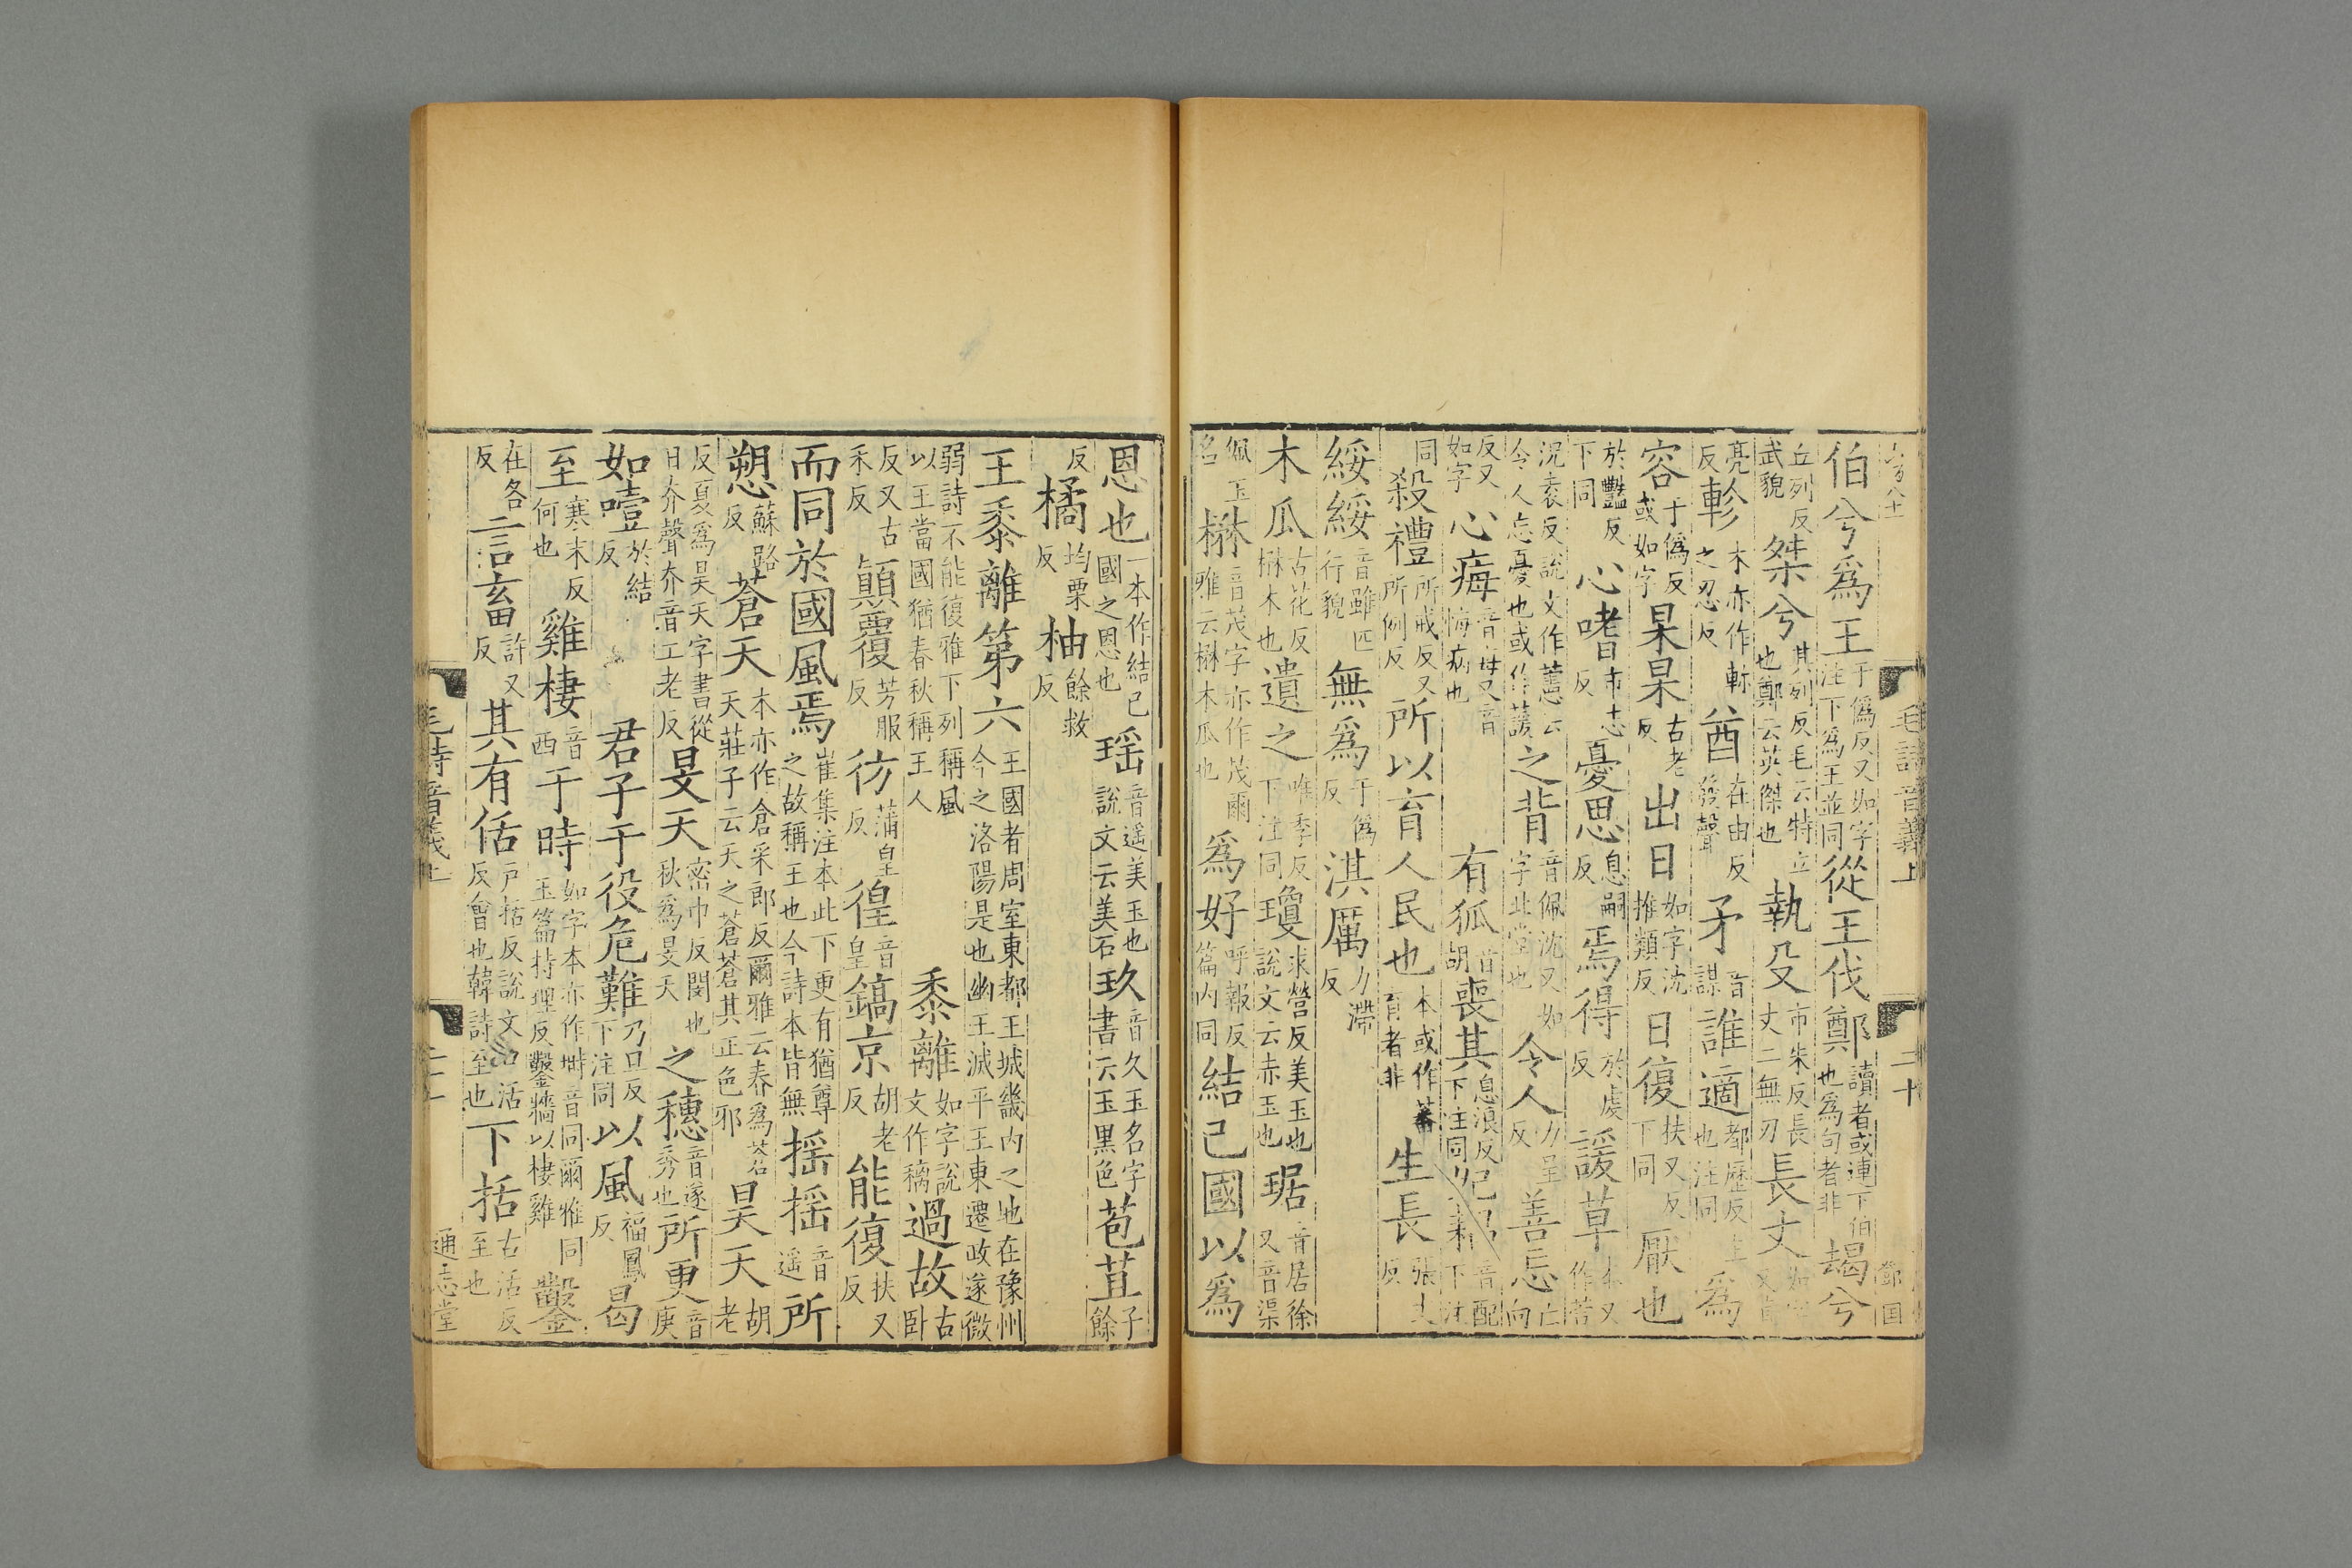 毛詩音義上 二十
伯兮爲王于僞反又如字注下爲王並同從王伐鄭讀者或連下伯也爲句者非朅兮
丘列反武貌桀兮其列反毛云特立也鄭云英傑也執殳市朱反長丈二無刃長丈
亮反軫本亦作軫之忍反酋在由反發聲矛音謀誰適都歷反主也注同爲
容于僞反或如字杲杲古老反出日如字沈推類反日復扶又反下同厭也
於豔反下同心嗜市志反憂思息嗣反焉得於虔反諼草本又作萱
況袁反說文作藼云令人忘憂也或作蕿之背音佩沈又如字北堂也令人力呈反善忘亡向
反又如字心痗音每又音悔病也有狐音胡喪其息浪反下注同妃耦音配下注
同殺禮所戒反又所例反所以育人民也本或作蕃育者非生長張丈反
綏綏音雖匹行貌無爲于僞反淇厲力滯反
木瓜古花反楙木也遺之唯季反下注同瓊求營反美玉也說文云赤玉也琚音居徐又音渠
佩玉名楙音茂字亦作茂爾雅云楙木瓜也爲好呼報反篇內同結己國以爲
恩也一本作結己國之恩也瑶音遥美玉也說文云美石玖音久玉名字書云玉黑色苞苴子餘
反橘均栗反柚餘救反
王黍離第六王國者周室東都王城畿內之地在豫州今之洛陽是也幽王滅平王東遷政遂微
弱詩不能復雅下列稱風以王當國猶春秋稱王人黍離如字說文作穲過故古臥
反又古禾反顚覆芳服反彷蒲皇反徨音皇鎬京胡老反能復扶又反
而同於國風焉崔集注本此下更有猶尊之故稱王也今詩本皆無揺揺音遥所
愬蘇路反蒼天本亦作倉采郎反爾雅云春爲蒼天莊子云天之蒼蒼其正色邪昊天胡老
反夏爲昊天字書從日夰聲夰音工老反旻天密巾反閔也秋爲旻天之穗音遂秀也所更音庚
如噎於結反君子于役危難乃旦反下注同以風福鳳反曷
至寒末反何也雞棲音西于時如字本亦作塒音同爾雅同玉篇持理反鑿牆以棲雞鑿
在各反言畜許又反其有佸戶括反說文口活反會也韓詩至也下括古活反至也
毛詩音義上 二十一 通志堂